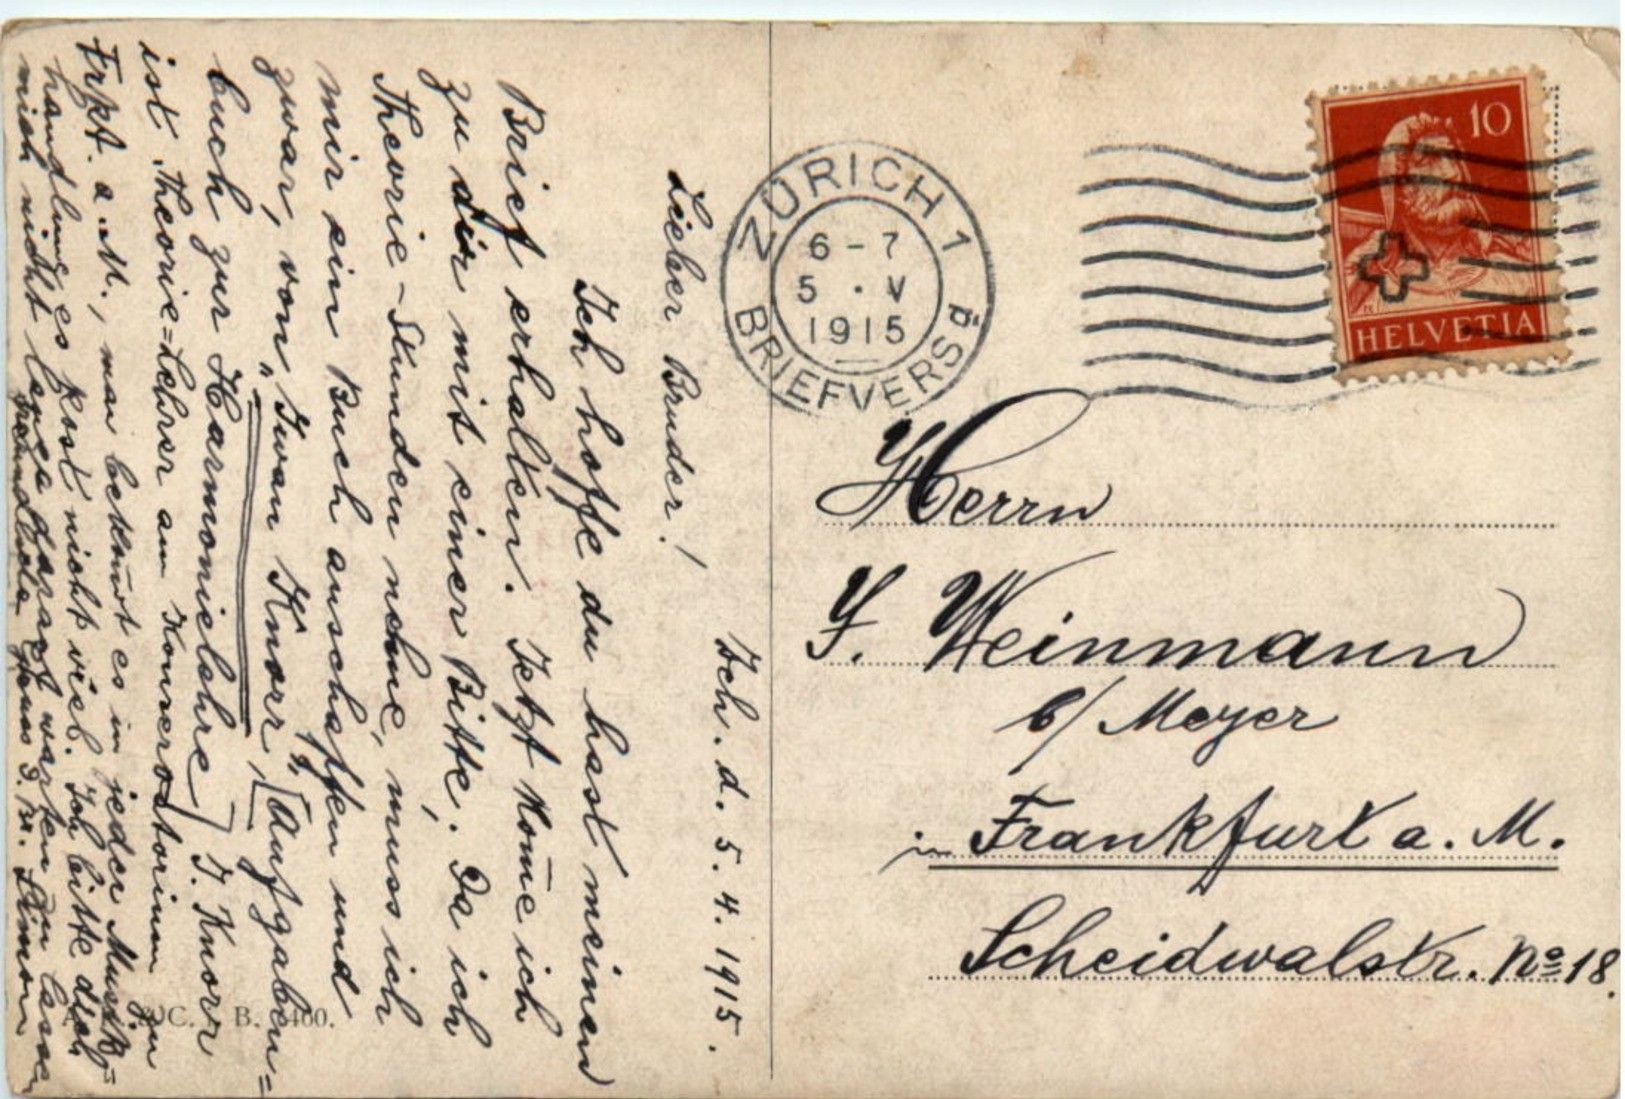 Zch. d. 5. 4. 1915.
Lieber Bruder!
Ich hoffe du hast meinen
Brief erhalten. Jetzt kom̄e ich
zu dir mit einer Bitte. Da ich
Theorie-Stunden nehme, muss ich
mir ein Buch anschaffen und
zwar, von „Iwan Knorr“, [Aufgaben=
buch zur Harmonielehre] I. Knorr
ist Theorie=Lehrer am Konservatorium zu
Frkft. a. M., man bekom̄t es in jeder Musik=
handlung es kost nicht viel. Ich bitte dich,
mich nicht lange darauf warten zu lassen
Gruss S. W. Simon
ZÜRICH 1
6-7
5 · V
1915
BRIEFVERSd.
10
HELVETIA
Herrn
J. Weinmann
b/ Meyer
in Frankfurt a. M.
Scheidwalstr. No 18.
C. B. 400.